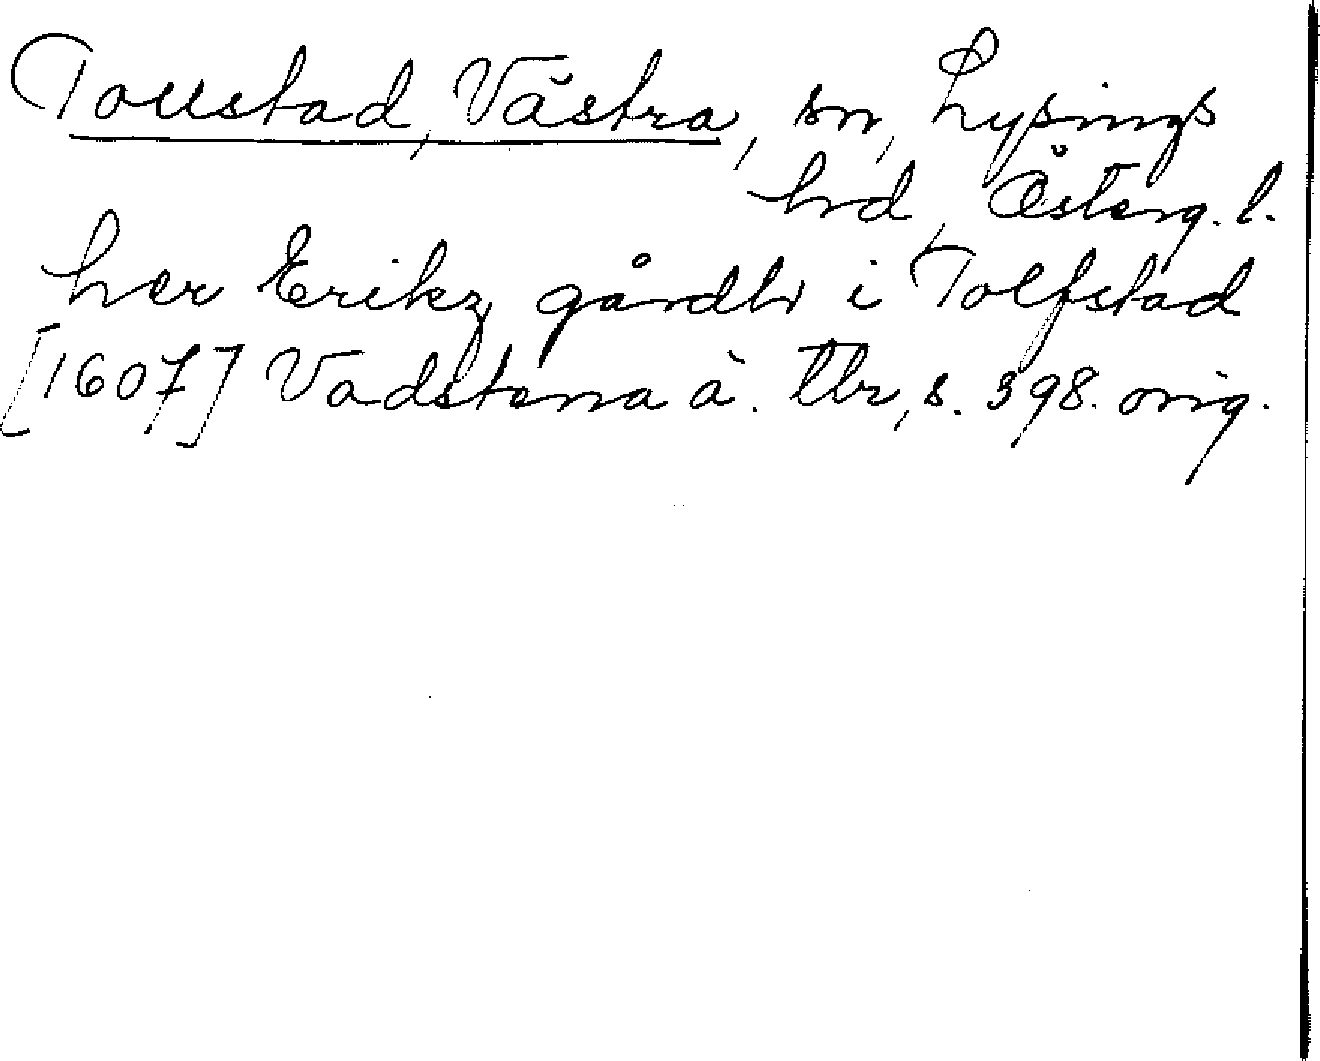 Tollstad, Västra, sn, Lysings
hrd, Österg. l.
her Erikz gårdh i Tolfstad
[1607] Vadstena ä. tbr, s. 398. orig.